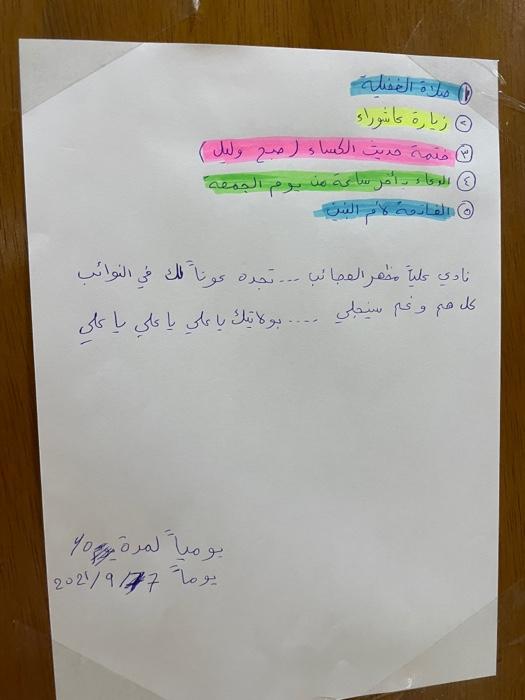 ① صلاة الغفيلة
② زيارة عاشوراء
③ ختمة حديث الكساء (صبح وليل)
④ الدعاء بـ أخر ساعة من يوم الجمعه
⑤ الفاتحة لأم البنين
نادي علياً مظهر العجائب ... تجده عوناً لك في النوائب
كل هم وغم سينجلي .... بولايتك يا علي يا علي يا علي
يومياً لمدة
يوماً 7/9/2021